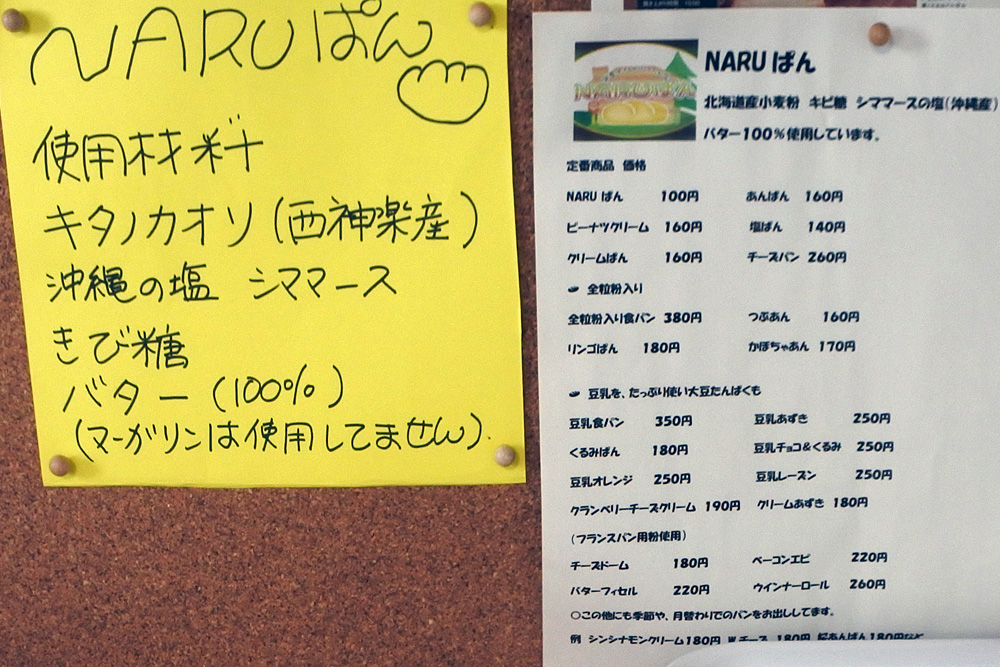 NARUぱん
使用材料
キタノカオリ(西神楽産)
沖縄の塩 シママース
きび糖
バター(100%)
(マーガリンは使用してません)
NARUぱん
北海道産小麦粉 キビ糖 シママースの塩(沖縄産)
バター100%使用しています。
定番商品 価格
NARUぱん 100円 あんぱん 160円
ピーナツクリーム 160円 塩ぱん 140円
クリームぱん 160円 チーズパン 260円
全粒粉入り
全粒粉入り食パン 380円 つぶあん 160円
リンゴぱん 180円 かぼちゃあん 170円
豆乳を、たっぷり使い大豆たんぱくも
豆乳食パン 350円 豆乳あずき 250円
くるみぱん 180円 豆乳チョコ&くるみ 250円
豆乳オレンジ 250円 豆乳レーズン 250円
クランベリーチーズクリーム 190円 クリームあずき 180円
(フランスパン用粉使用)
チーズドーム 180円 ベーコンエピ 220円
バターフィセル 220円 ウインナーロール 260円
○この他にも季節や、月替わりでのパンをお出ししてます。
例 シンシナモンクリーム180円 Wチーズ 180円 桜あんぱん180円など